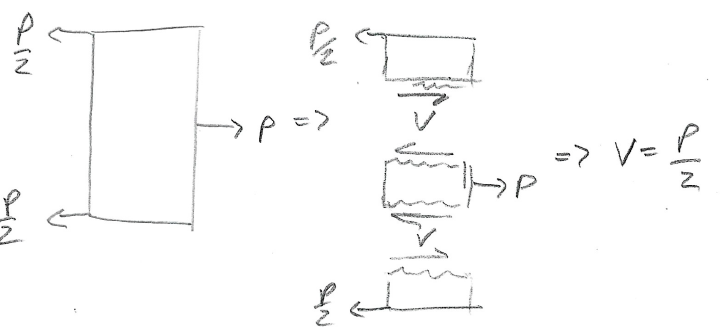 P/2
P/2
P =>
P/2
V
P
V
P/2
=> V = P/2